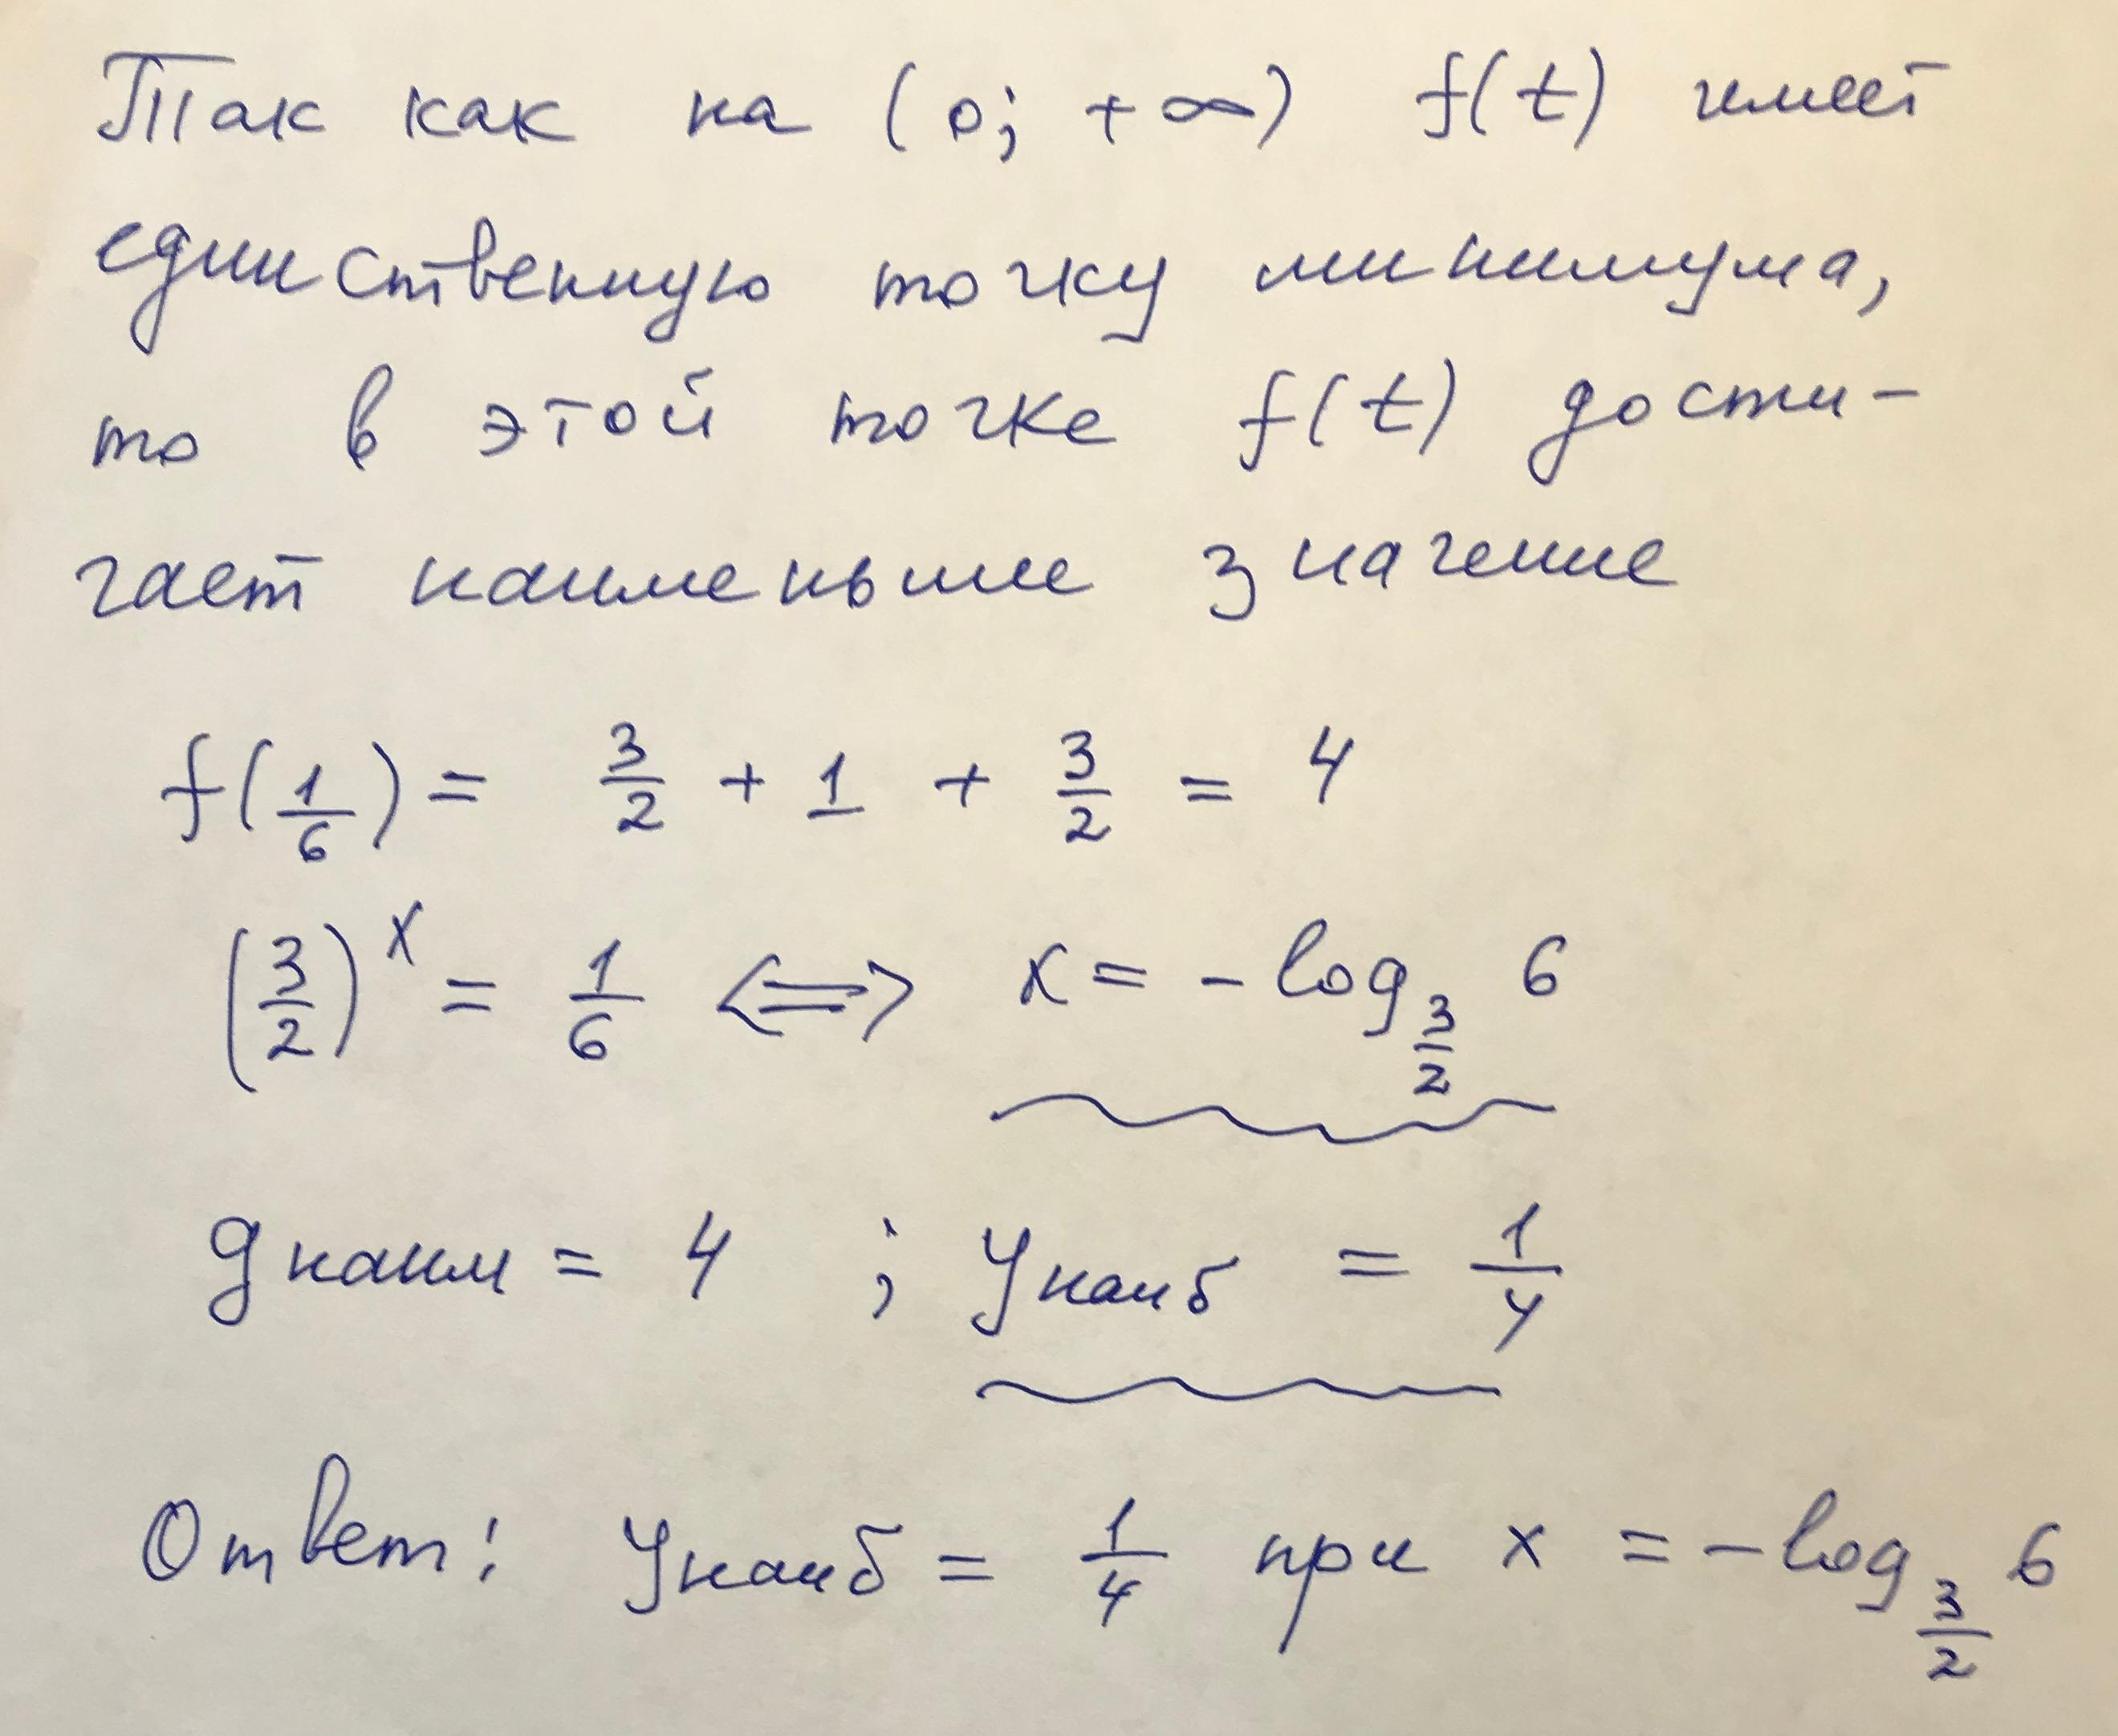 Так как на (0; +∞) f(t) имеет
единственную точку минимума,
то в этой точке f(t) дости-
гает наименьшее значение
f(1/6) = 3/2 + 1 + 3/2 = 4
(3/2)^x = 1/6 <=> x = - log_{3/2} 6
g наим = 4 ; y наиб = 1/4
Ответ: y наиб = 1/4 при x = - log_{3/2} 6